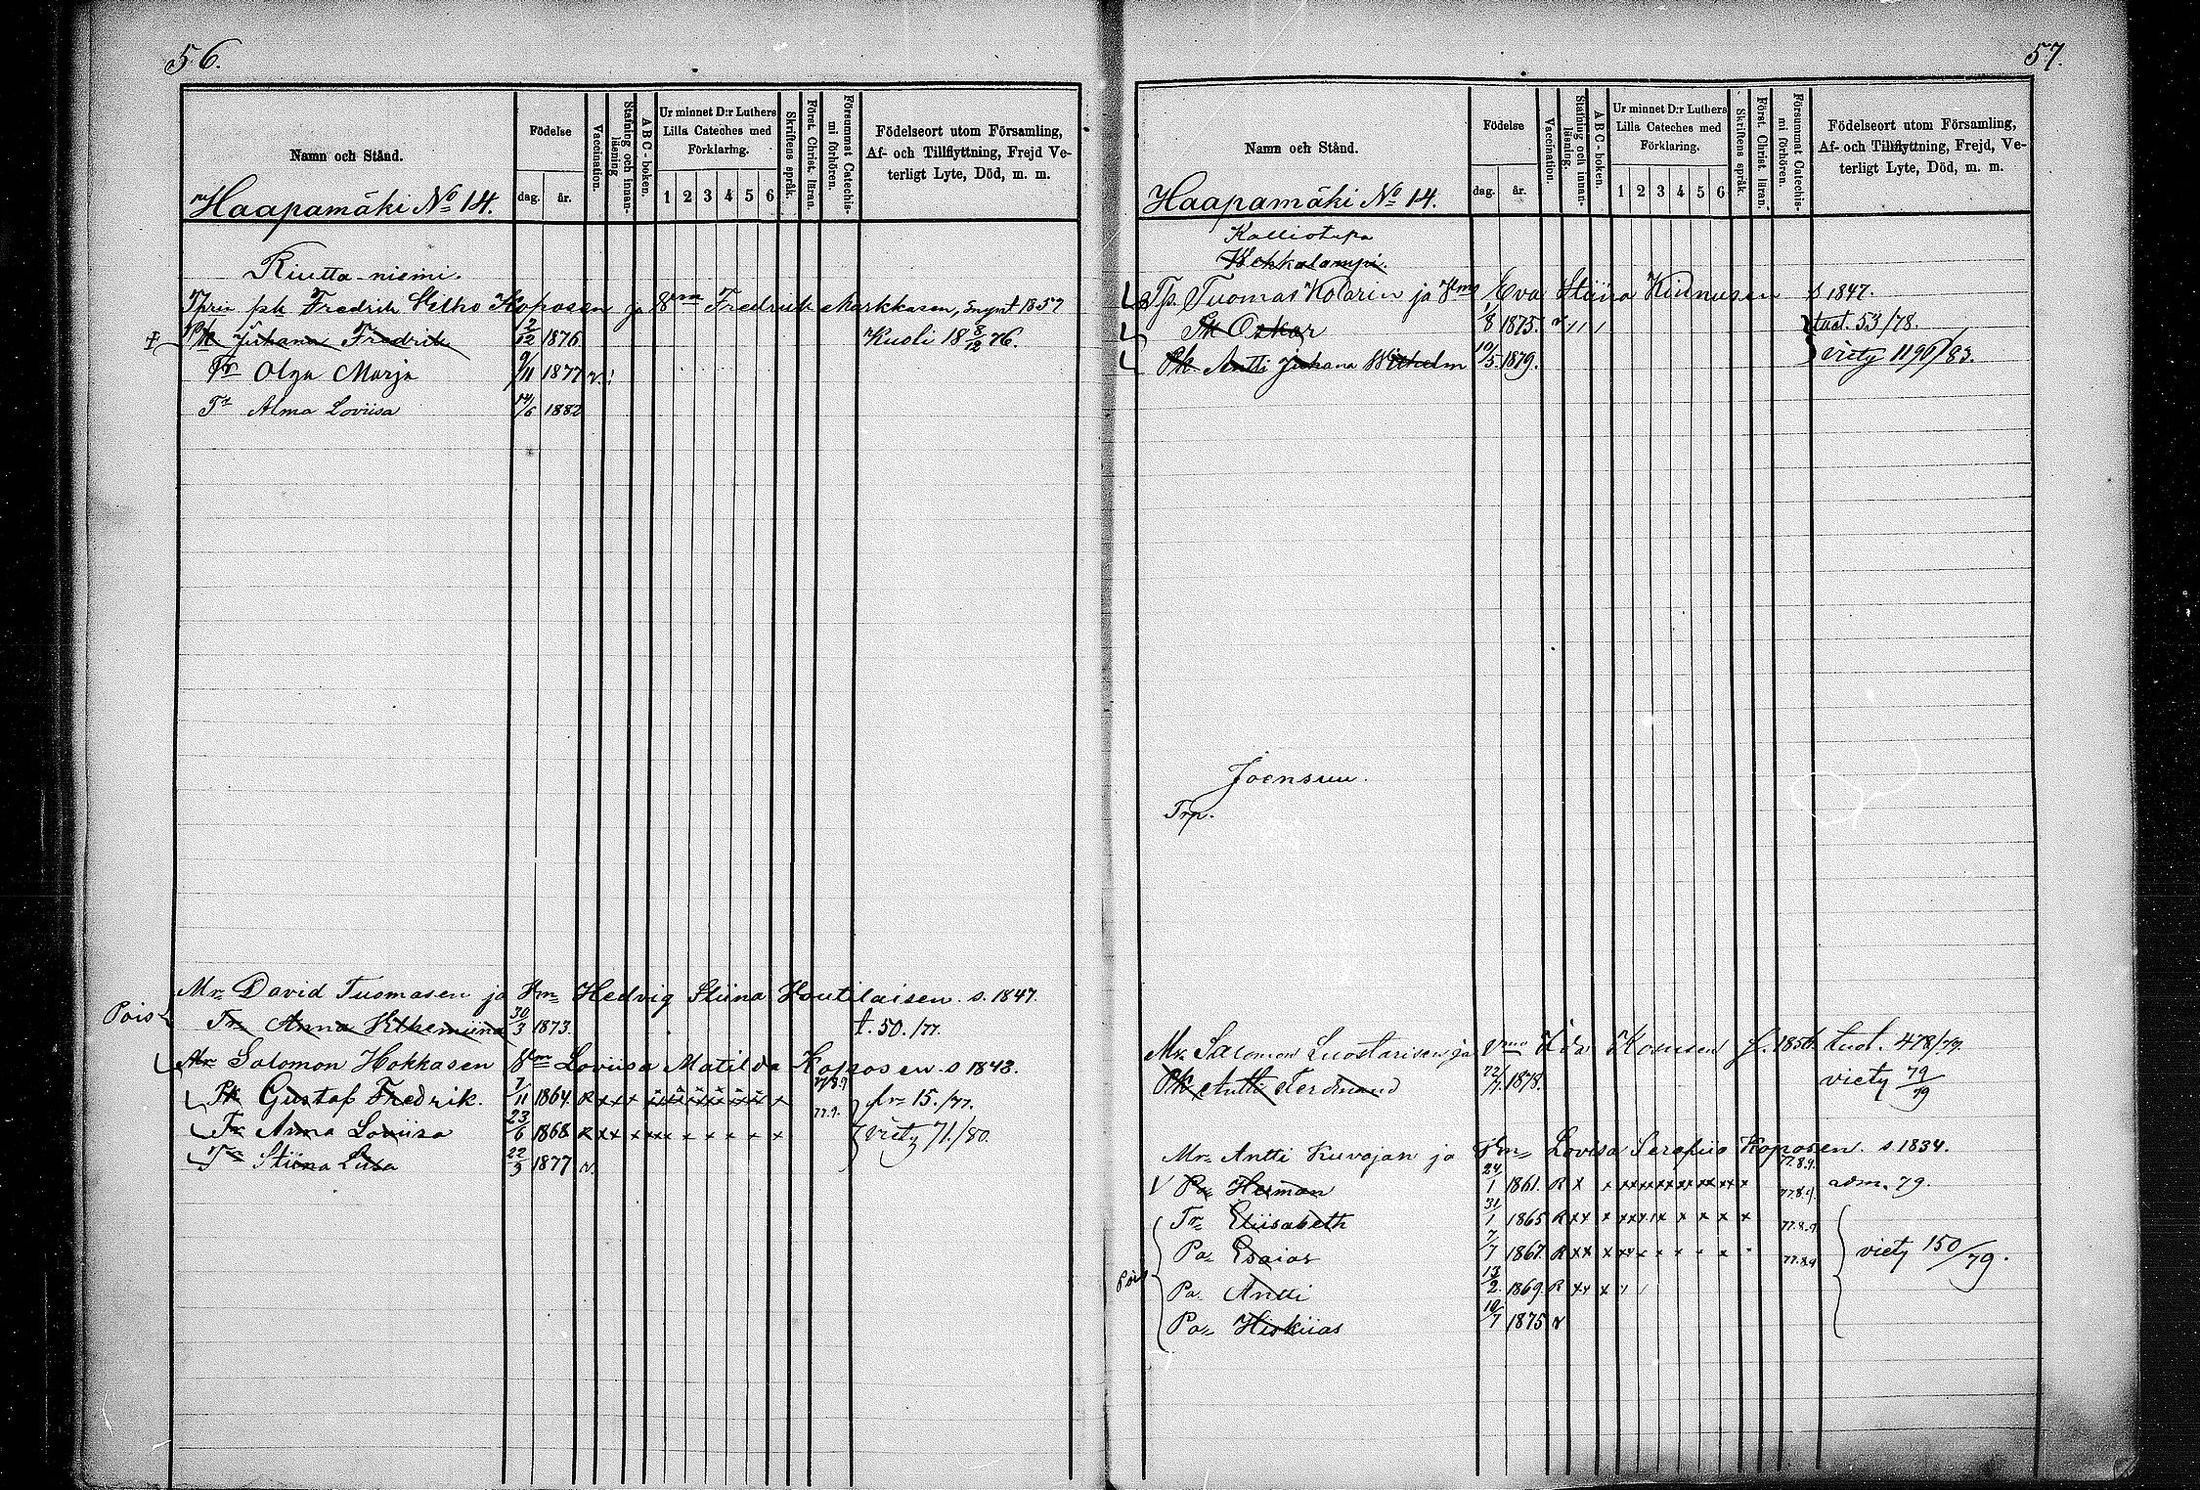 56.
Namn och Stånd.
Födelse
dag. år.
Vaccination.
Stafning och innanläsning
ABC-boken.
Ur minnet D:r Luthers Lilla Cateches med Förklaring.
1 2 3 4 5 6
Skriftens språk.
Först. Christ. läran.
Försummat Catechismi förhören.
Födelseort utom Församling, Af- och Tillflyttning, Frejd Veterligt Lyte, Död, m. m.
Haapamäki No 14.
Riutta-niemi.
psk Fredrik Koposen ja Fredrik Markkasen, synt 1857
Pk Juhana Fredrik 2/12 1876. Kuoli 18 8/12 76.
Tr Olga Marja 9/11 1877 v.
Tr Alma Loviisa 14/6 1882
Mr David Tuomasen ja Vm Hedvig Stiina Houtilaisen s. 1847.
Pois Tr Anna Vilhemiina 30/3 1873. t. 50./77.
Mr Salomon Hokkasen Vm Loviisa Matilda Koposen s 1843.
Pk Gustaf Fredrik. 7/11 1864. R x x x 77.8.9 15./77.
Tr Anna Loviisa 23/6 1868 R x x x x x x x x x 77.9. viety 71./80.
Tr Stiina Liisa 22/3 1877 v.
57.
Namn och Stånd.
Födelse
dag. år.
Vaccination.
Stafning och innanläsning.
ABC-boken.
Ur minnet D:r Luthers Lilla Cateches med Förklaring.
1 2 3 4 5 6
Skriftens språk.
Först. Christ. läran.
Försummat Catechismi förhören.
Födelseort utom Församling, Af- och Tillflyttning, Frejd, Veterligt Lyte, Död, m. m.
Haapamäki No 14.
Kalliotupa
Kokkolampi.
Tp. Tuomas Kolarin ja Vm Eva Stiina Kinnusen s 1847.
Pk Oskar 1/8 1875. v tuot. 53/78.
Pk. Antti Juhana Wilhelm 10/5 1879. viety 1196/83.
Joensuu.
Trp.
Mr. Salomon Luostarisen ja Vmn Ida Kosusen f. 1856. tuot. 478/79.
Pk Antti Ferdinand 22/7 1878. viety 79/79
Mr Antti Kuvajan ja Vm Lovisa Serafiia Koposen. s 1834.
Pa Herman 24/1 1861. R x x x x x x x x x 77.8.9. adm. 79.
Tr Eliisabeth 31/1 1865 R x x x x x x x x x x 77.8.9.
Pa Esaias 7/7 1867. R x x x x x x x x 77.8.9
Pois Pa Antti 13/2 1869. R x x x 77.8.9 viety 150/79.
Pa Hiskiias 10/7 1875 v